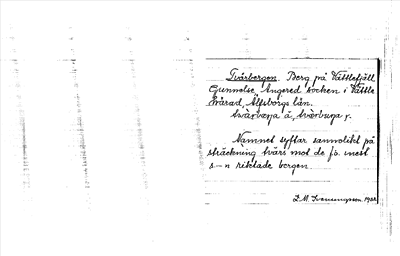 Tvärbergen. Berg på Vättlefjäll
Gunnilse, Angered socken i Vättle
härad, Älfsborgs län.
tvärbærja å, tvärbærja r.
Namnet syftar sannolikt på
sträckning tvärs mot de f.ö. mest
s–n riktade bergen.
1922